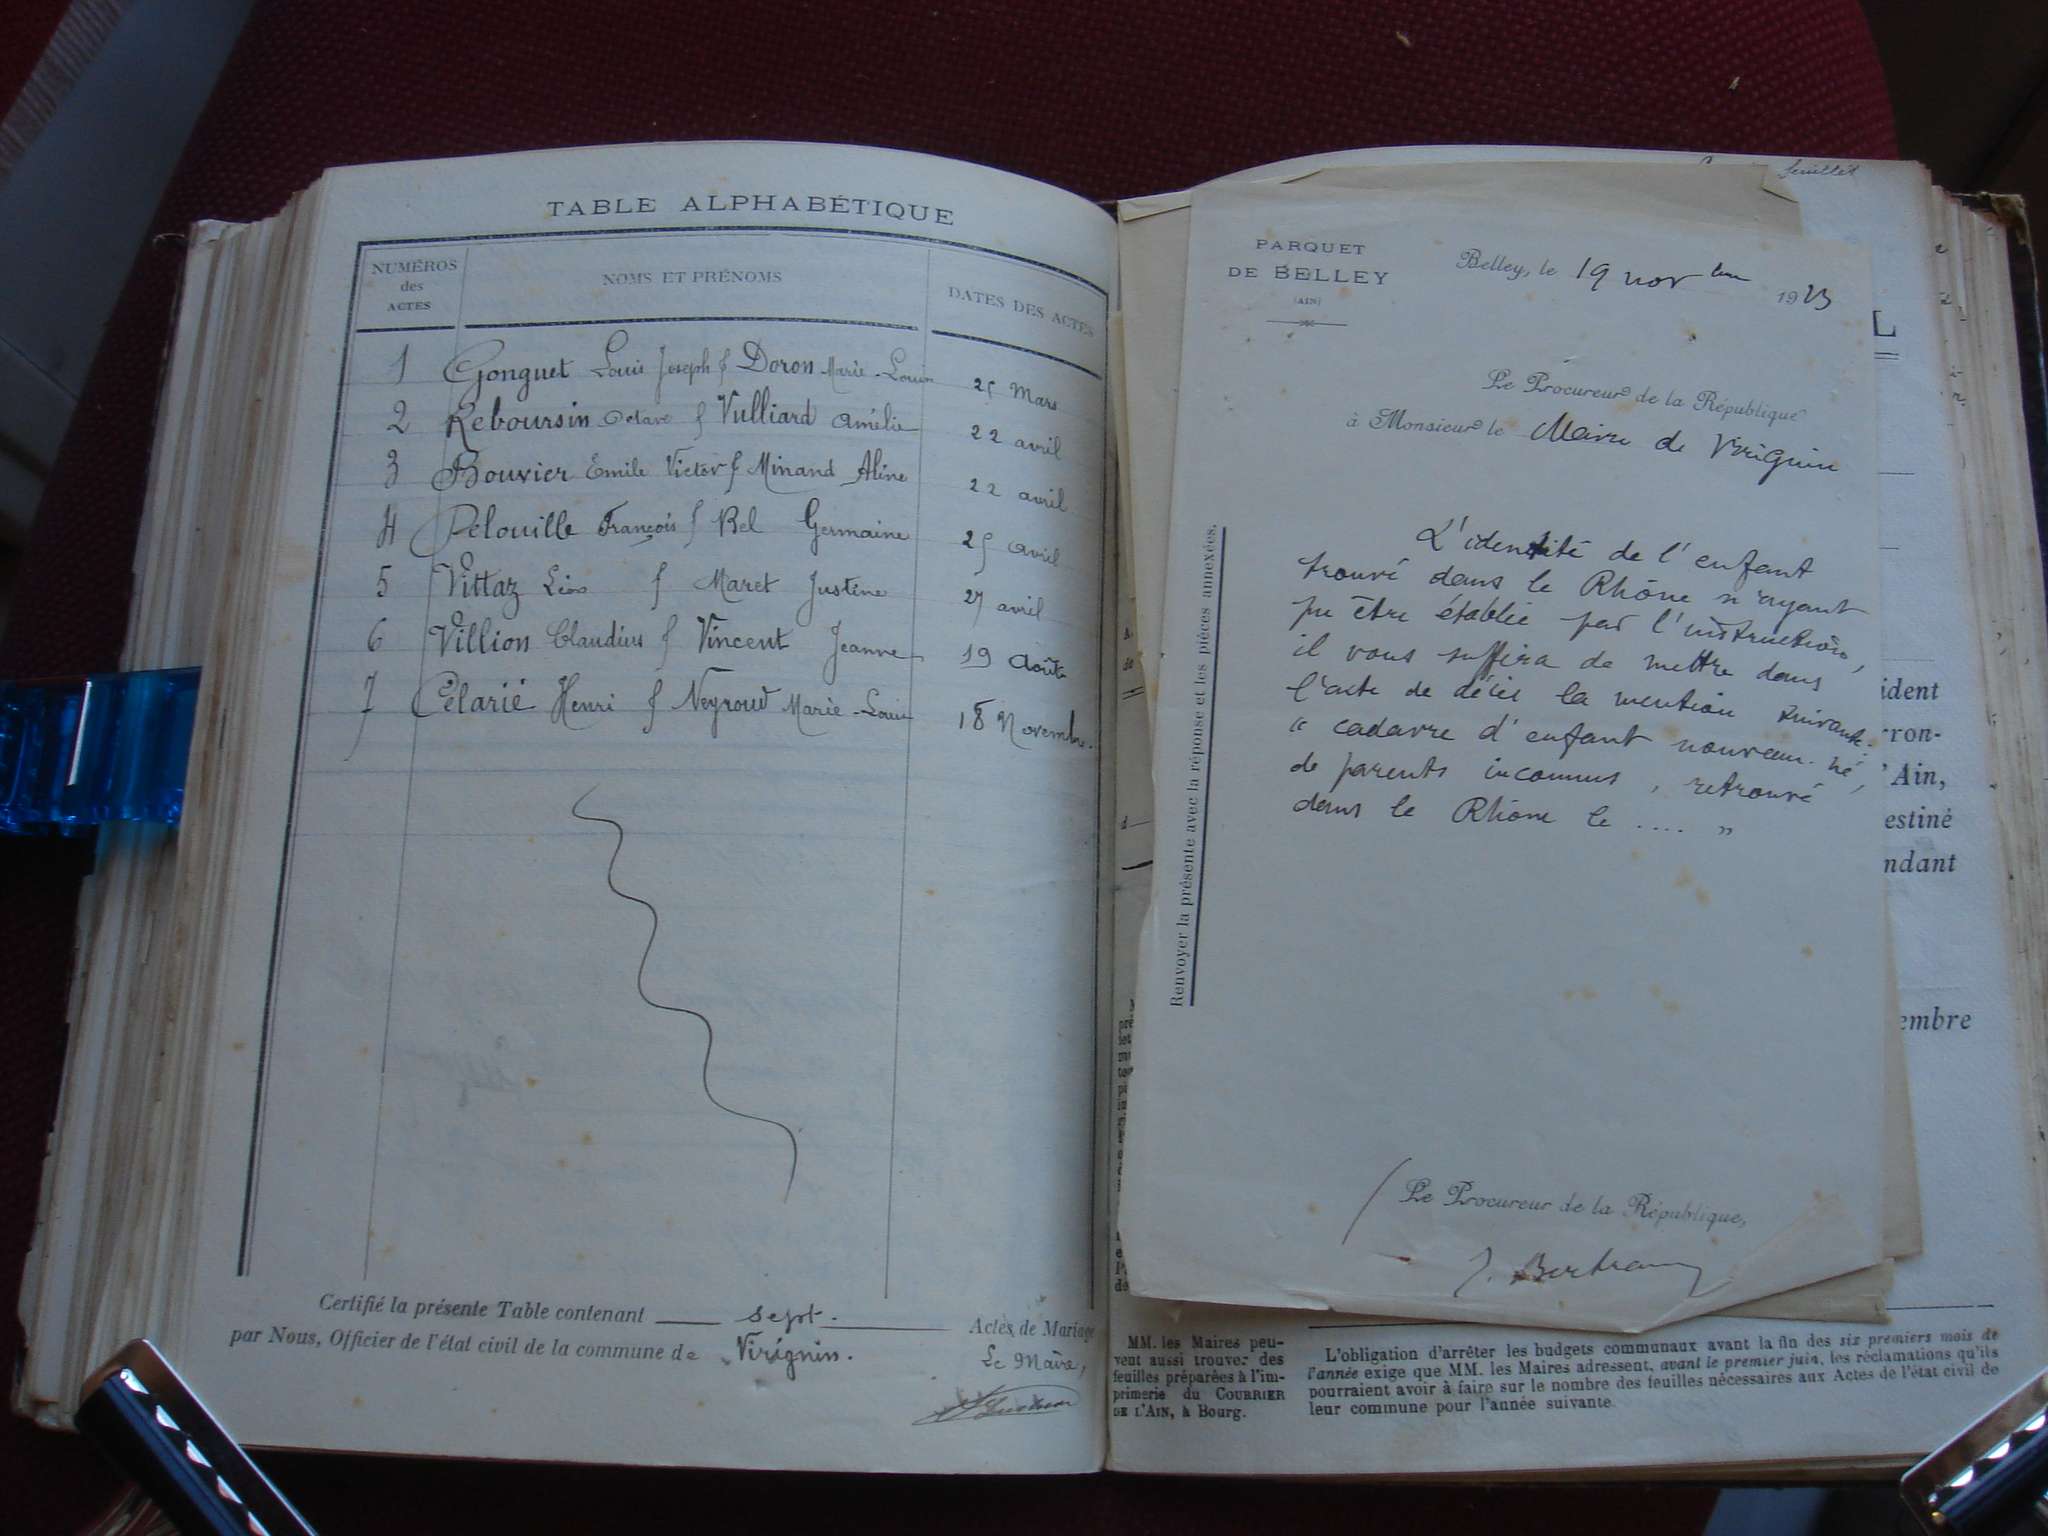 TABLE ALPHABÉTIQUE
NUMÉROS
des
ACTES
NOMS ET PRÉNOMS
DATES DES ACTES
1 Gonguet Louis Joseph & Doron Marie-Louise 25 Mars
2 Reboursin Octave & Vulliard Amélie 22 avril
3 Bouvier Emile Victor & Minand Aline 22 avril
4 Pelouille François & Bel Germaine 25 avril
5 Vittaz Léon & Maret Justine 27 avril
6 Villion Claudius & Vincent Jeanne 19 Août
7 Célarié Henri & Neyroud Marie-Louise 18 Novembre.
Certifié la présente Table contenant sept. Actes de Mariage
par Nous, Officier de l'état civil de la commune de Virignin.
Le Maire,
feuillet
PARQUET
DE BELLEY
(AIN)
Belley, le 19 novbre 1923
Le Procureur de la République
à Monsieur le Maire de Virignin
Renvoyer la présente avec la réponse et les pièces annexées.
L'identité de l'enfant
trouvé dans le Rhône n'ayant
pu être établie par l'instruction,
il vous suffira de mettre dans
l'acte de décès la mention suivante:
" cadavre d'enfant nouveau-né,
de parents inconnus, retrouvé
dans le Rhône le .... "
Le Procureur de la République,
J. Bertrand
L
ident
rron-
'Ain,
estiné
ndant
embre
MM. les Maires peu-
vent aussi trouver des
feuilles préparées à l'im-
primerie du COURRIER
DE L'AIN, à Bourg.
L'obligation d'arrêter les budgets communaux avant la fin des six premiers mois de
l'année exige que MM. les Maires adressent, avant le premier juin, les réclamations qu'ils
pourraient avoir à faire sur le nombre des feuilles nécessaires aux Actes de l'état civil de
leur commune pour l'année suivante.